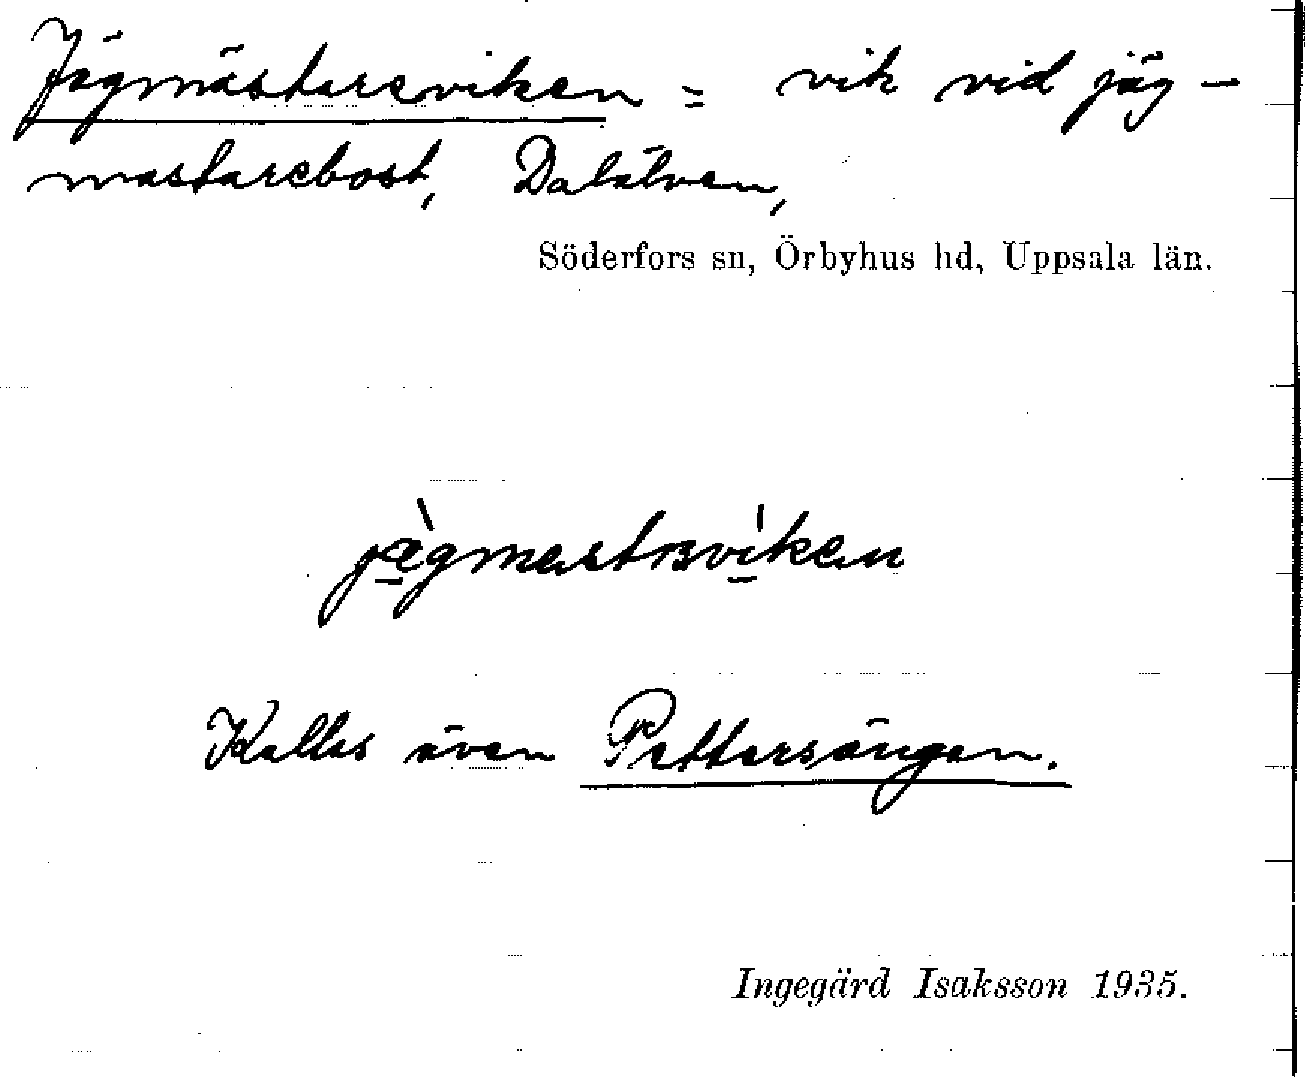 Jägmästaresviken = vik vid jäg-
mastarebost, Dalälven,
Söderfors sn, Örbyhus hd, Uppsala län.
jæ̠̀gmestrsvì̠ken
Kallas även Pettersängen.
Ingegärd Isaksson 1935.